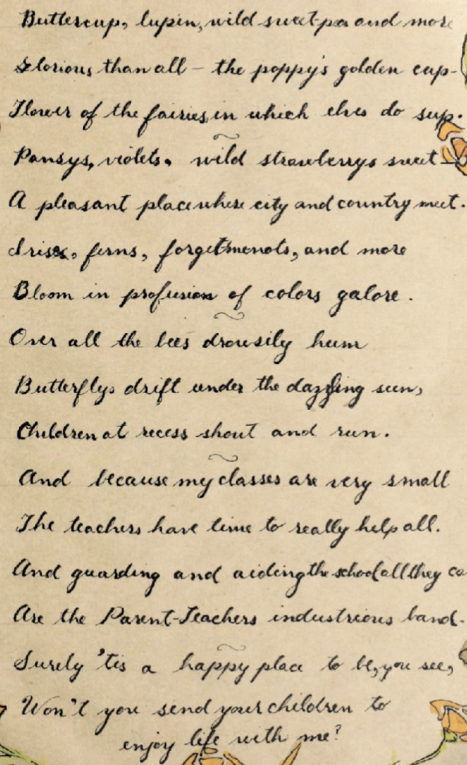 Buttercup, lupin, wild sweet-pea and more
Glorious than all - the poppy's golden cup-
Flower of the fairies, in which elves do sup.
Pansys, violets, wild strawberrys sweet
A pleasant place where city and country meet.
Iris, ferns, forgetmenots, and more
Bloom in profusion of colors galore.
Over all the bees drowsily hum
Butterflys drift under the dazzling sun,
Children at recess shout and run.
And because my classes are very small
The teachers have time to really help all.
And guarding and aiding the school all they ca
Are the Parent-Teachers industrious band.
Surely 'tis a happy place to be, you see,
Won't you send your children to
enjoy life with me?